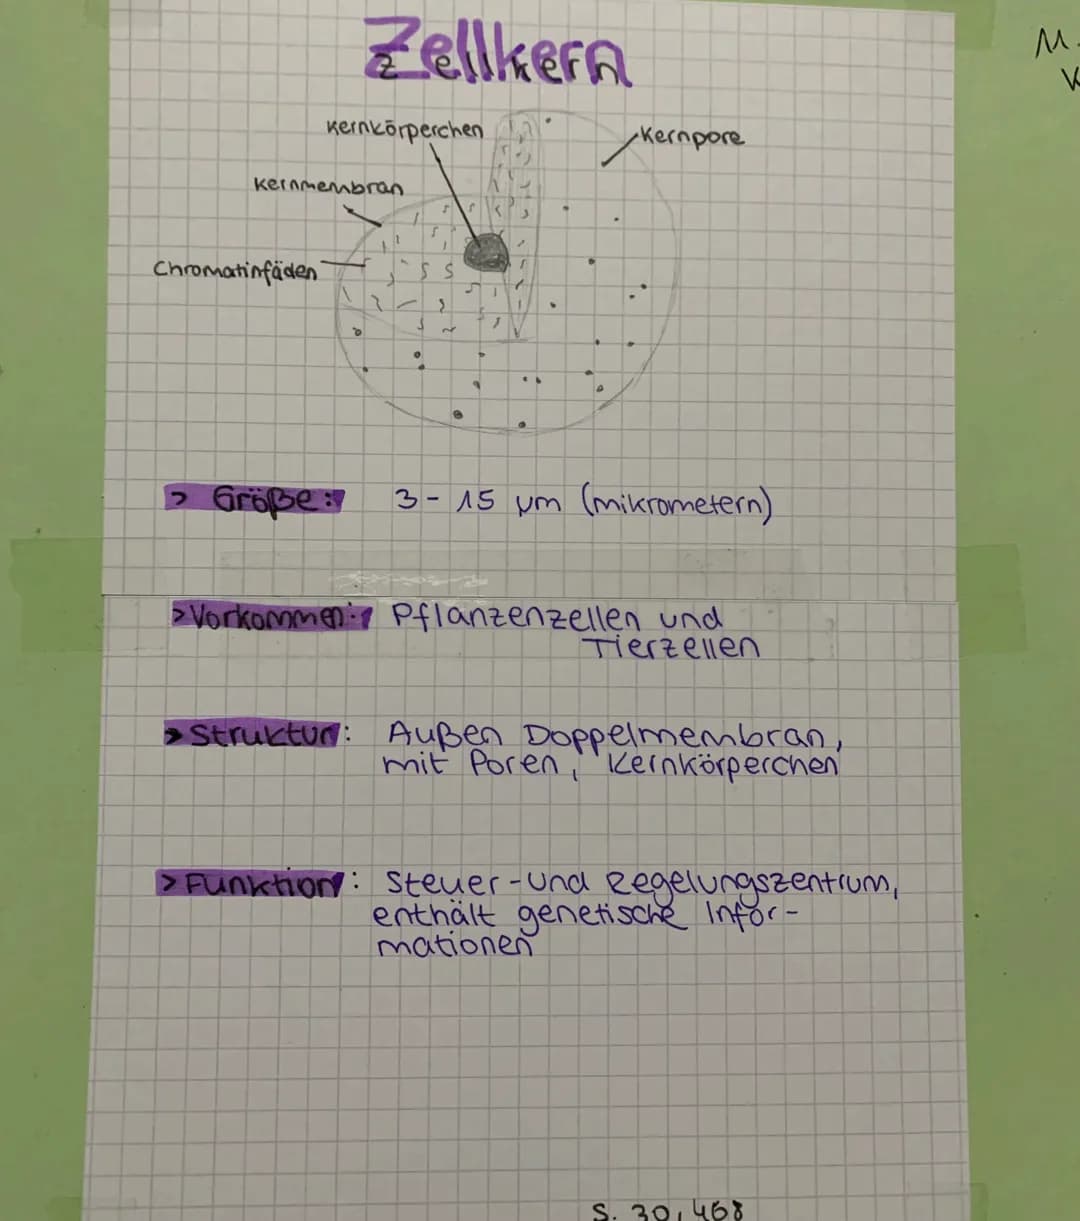 Zellkern
Kernkörperchen
Kernpore
Kernmembran
Chromatinfäden
> Größe: 3 - 15 µm (mikrometern)
> Vorkommen: Pflanzenzellen und
Tierzellen
> Struktur: Außen Doppelmembran,
mit Poren, Kernkörperchen
> Funktion: Steuer - und Regelungszentrum,
enthält genetische Infor-
mationen
S. 30, 468